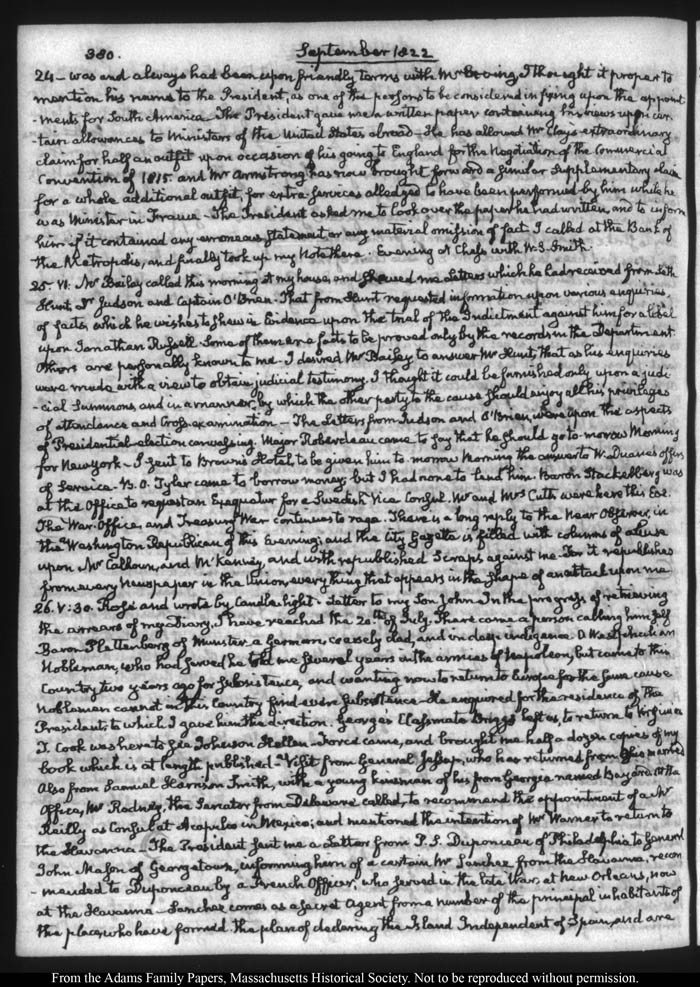 380.
September 1822
24 – was and always had been upon friendly terms with Mr Erving, I thought it proper to
mention his name to the President, as one of the persons to be considered in fixing upon the appoint
-ments for South America – The President gave me a written paper containing his views upon cer
tain allowances to Ministers of the United States abroad – He has allowed Mr Clay's extraordinary
claim for half an outfit upon occasion of his going to England for the Negotiation of the Commercial
Convention of 1815 and Mr Armstrong has now brought forward a similar supplementary claim
for a whole additional outfit, for extra-services alledged to have been performed by him while he
was Minister in France – The President asked me to look over the paper he had written, and to inform
him if it contained any erroneous statement or any material omission of fact. I called at the Bank of
the Metropolis, and finally took up my Note there. Evening at Chess with W. S. Smith.
25. VI. Mr Bailey called this morning at my house, and shewed me Letters which he had received from Seth
Hunt, Dr Judson and Captain O'Brien. That from Hunt requested information upon various enquiries
of facts, which he wishes to shew in Evidence upon the trial of the Indictment against him for a libel
upon Jonathan Russell. Some of them are facts to be proved only by the records in the Department
Others are personally known to me. I desired Mr Bailey to answer Mr Hunt, that as his enquiries
were made with a view to obtain judicial testimony, I thought it could be furnished only upon a judi
-cial summons, and in a manner by which the other party to the cause should enjoy all his privileges
of attendance and Cross-examination – The Letters from Judson and O'Brien, were upon the aspects
of Presidential election canvassing. Major Roberdeau came to say that he should go to-morrow Morning
for New York – I sent to Brown's Hotel, to be given him to morrow Morning the answer to W. Duane's offers
of service. B. O. Tyler came to borrow money; but I had none to lend him. Baron Stackelberg was
at the Office to request an Exequatur for a Swedish Vice Consul. Mr and Mrs Cutts were here this Eve.
The War-Office, and Treasury War continues to rage. There is a long reply to the Near Observer, in
the Washington Republican of this Evening; and the City Gazette is filled with columns of abuse
upon Mr Calhoun, and McKenney, and with republished Scraps against me. For it republishes
from every Newspaper in the Union, every thing that appears in the shape of an attack upon me
26. V:30. Rose and wrote by Candle-light. Letter to my Son John. In the progress of retrieving
the arrears of my Diary, I have reached the 20th of July. There came a person calling himself
Baron Plettenberg of Munster a German; coarsely clad, and in deep indigence. A Westphalian
Nobleman, who had served he told me several years in the armies of Napoleon, but came to this
Country two years ago for subsistence, and wanting now to return to Europe for the same cause
Nobleman cannot in this Country find even subsistence – He enquired for the residence of the
President; to which I gave him the direction. George's Classmate Briggs left us, to return to Virginia
T. Cook was here to see Johnson Hellen – Force came, and brought me half a dozen copies of my
book which is at length published – Visit from General Jessup, who has returned from
Also from Samuel Harrison Smith, with a young kinsman of his from Georgia named Bayard. At the
Office, Mr Rodney, the Senator from Delaware called, to recommend the appointment of a Mr
Reilly as Consul at Acapulco in Mexico; and mentioned the intention of Mr Warner to return to
the Havanna – The President sent me a Letter from P. S. Duponceau of Philadelphia to General
John Mason of Georgetown, informing him of a certain Mr Sanchez from the Havanna, recom
-mended to Duponceau by a French Officer, who served in the late War, at New Orleans, now
at the Havanna – Sanchez comes as a Secret Agent from a number of the principal inhabitants of
the place, who have formed the plan of declaring the Island Independent of Spain, and are
From the Adams Family Papers, Massachusetts Historical Society. Not to be reproduced without permission.